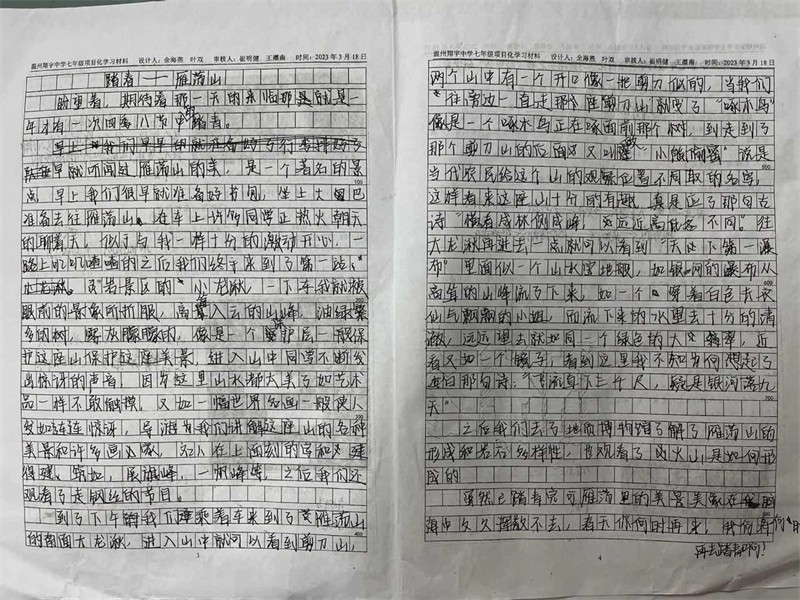 温州翔宇中学七年级项目化学习材料 设计人：金海燕 叶双 审核人：崔明健 王瓒南 时间：2023年3月18日
踏春——雁荡山
盼望着，期待着那一天的来临那是就是一
年才有一次的第八节 踏春。
早就听闻过雁荡山的美，是一个著名的景
点 早上我们很早就准备好书包，坐上大巴
准备去往雁荡山。在车上许多同学正热火朝天
的聊着天，似乎与我一样十分的激动开心，一
路上叽叽喳喳的之后我们终于来到了第一站：
景区的“小龙湫，一下车我就被
眼前的景象所折服，高耸入云的山峰，油绿
的树，朦灰朦朦的，像是一个保护层一般保
护这座山保护这座美景，进入山中同学不断发
出惊讶的声音，因为这里山水都太美了如艺术
品一样不敢触摸，又如一幅世界名画一般使人
连连惊讶，导游为我们讲解这座山的各种
美景和许多
展旗峰，一帆峰等，之后我们还
观看了走钢丝的节目。
到了下午时我们乘着车来到了雁荡山
的南面大龙湫，进入山中就可以看到剪刀山，
3
温州翔宇中学七年级项目化学习材料 设计人：金海燕 叶双 审核人：崔明健 王瓒南 时间：2023年3月18日
两个山中有一个开口像一把剪刀似的，当我们
往旁边一直走那座剪刀山就成了“啄木鸟”
像是一个啄木鸟正在啄面前那个树，到走到了
那个剪刀山的后面又叫 “小熊偷蜜”说是
当代农民给这个山的观察位置不同取的名字，
这样看来这座山十分的有趣，真是应了那句古
诗“横看成林侧成峰，远近高低各不同。往
大龙湫再进去一点就可以看到“天下第一瀑
布”里面似一个山水宝地般，如银河的瀑布从
高耸的山峰流了下来，如一个穿着白色天衣
仙与飘飘的小姐，而流下来的水望去十分的清
澈，远远望去就如同一个绿色的大翡翠，近
看又如一个镜子，看到这里我不知为何想起了
李白那句诗：“飞流直下三千尺，疑是银河落九
天”
之后我们去了地质博物馆了解了雁荡山的
形成和岩石多样性，也观看了火山是如何形
成的
虽然已踏春完可雁荡里的美景美象在我脑
海中久久挥散不去，春天你何时再来，我们再们
再去踏春啊！
4